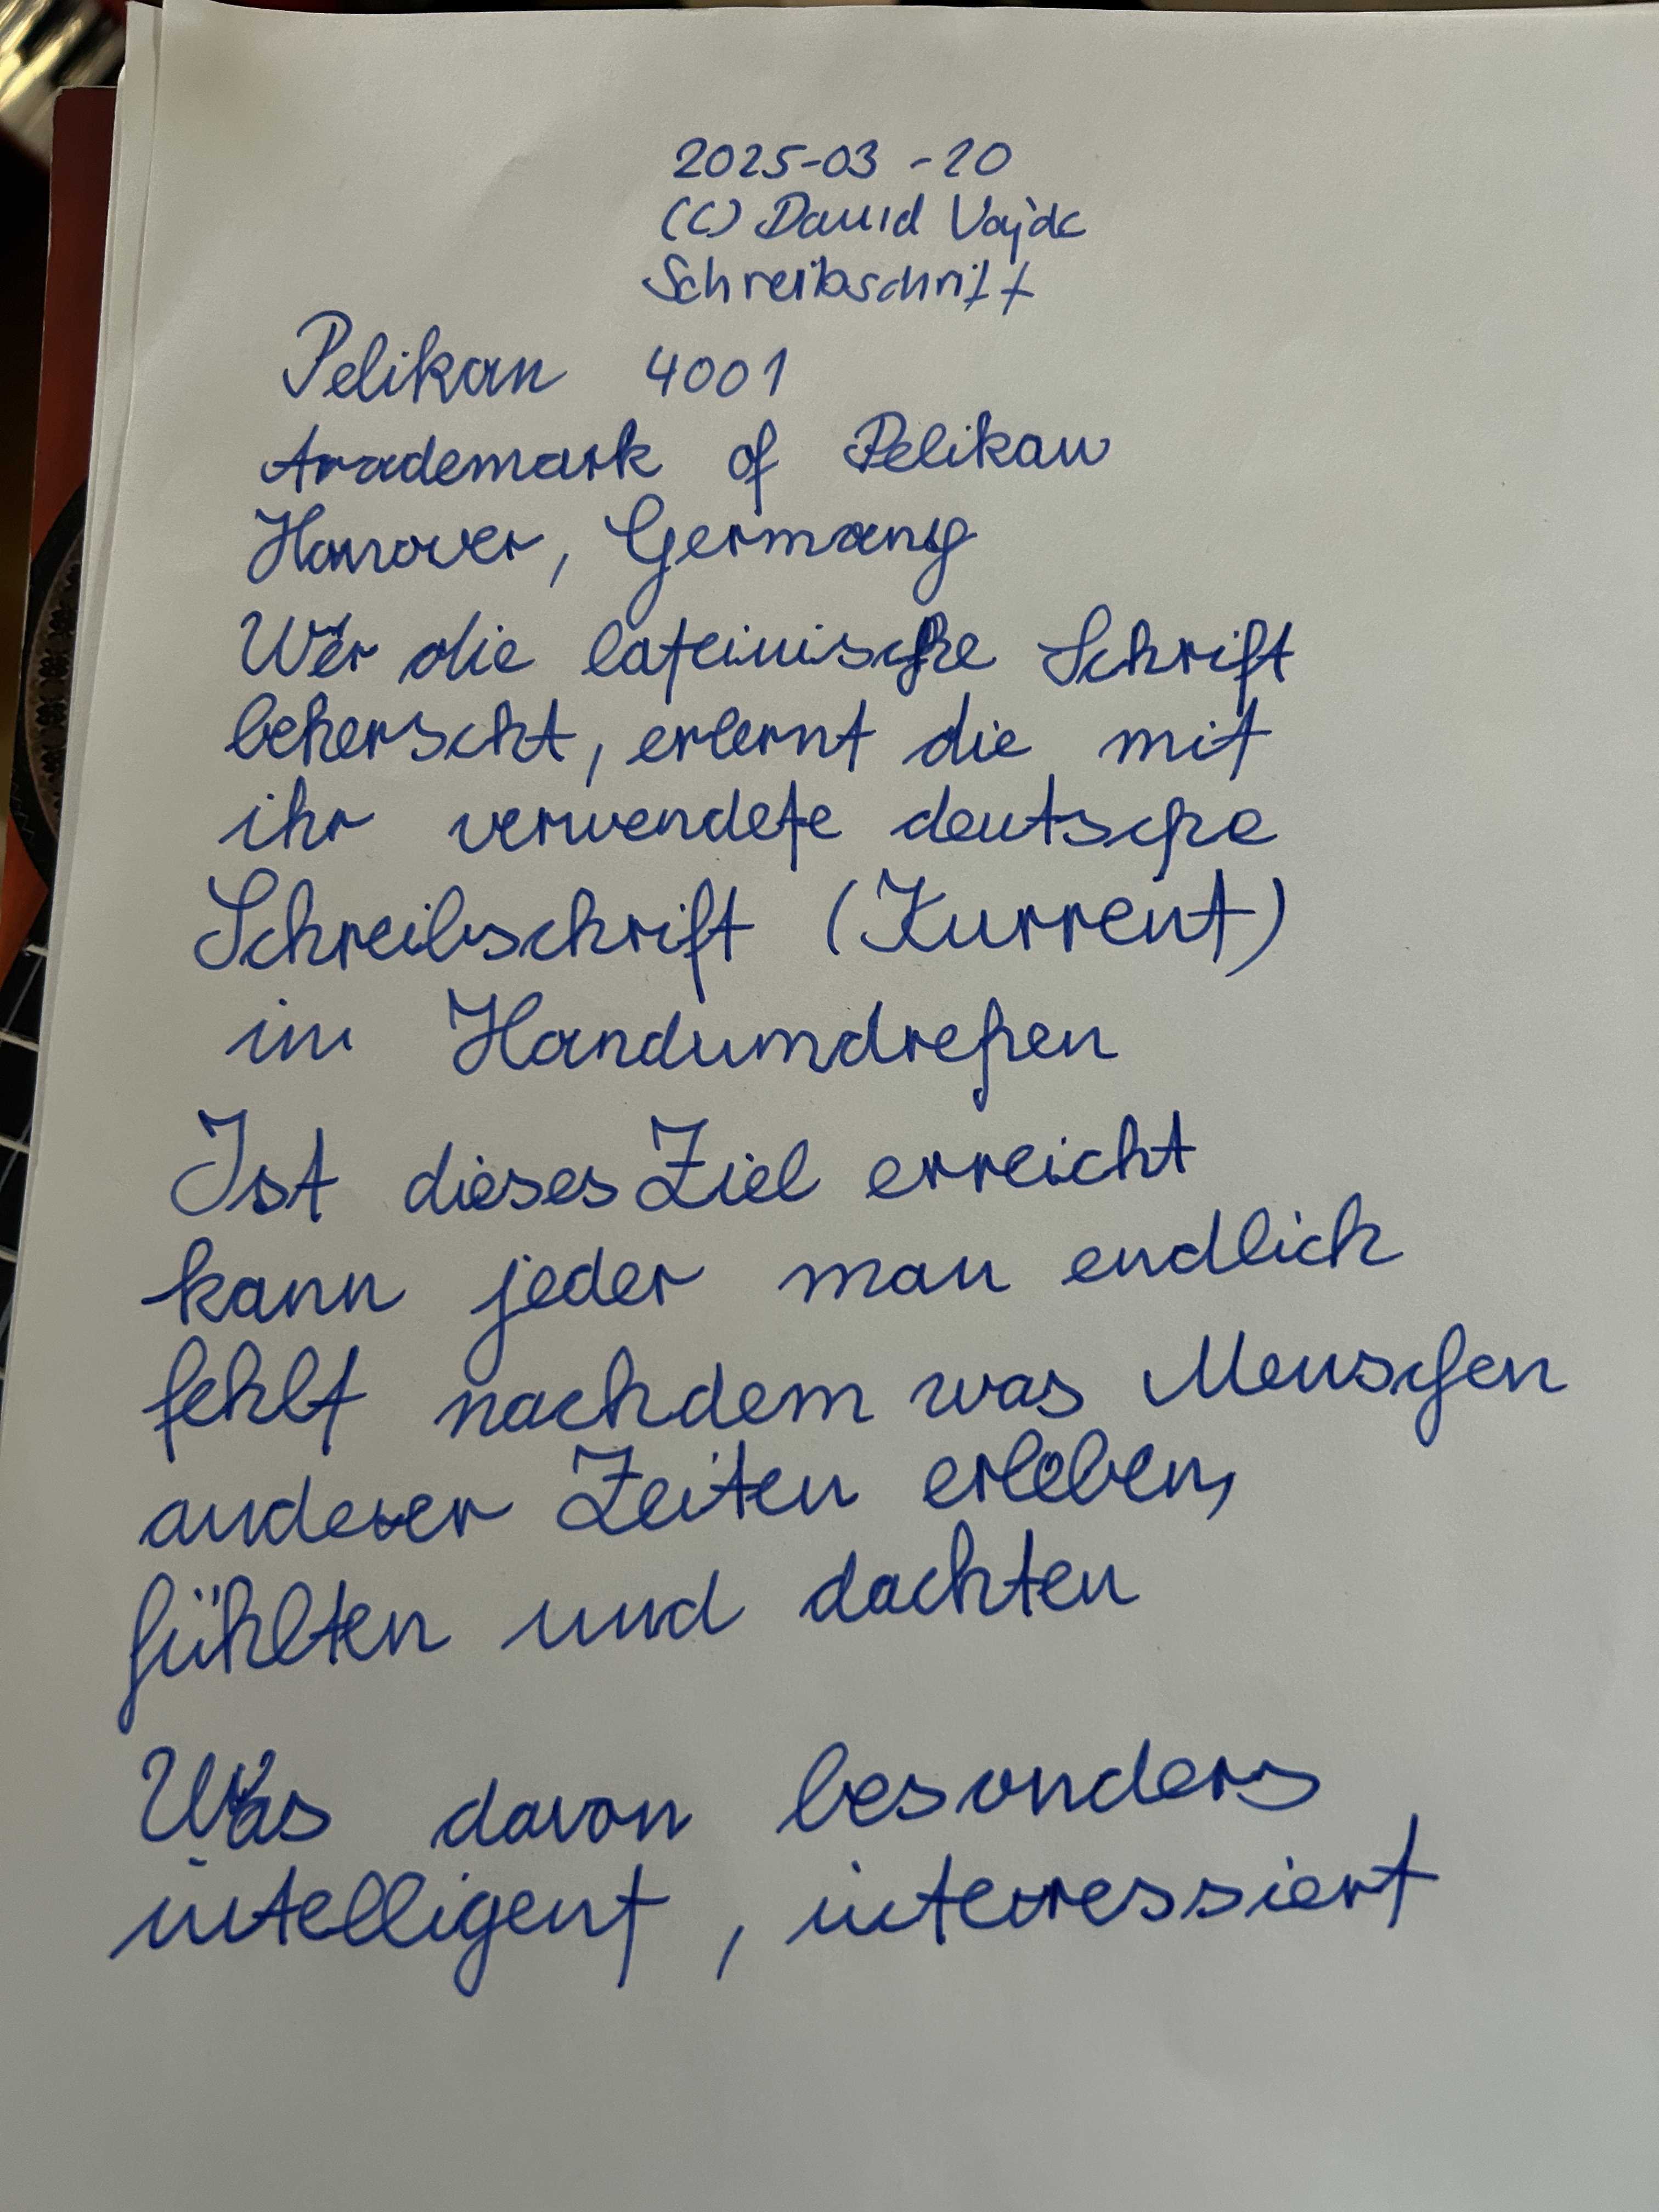 2025-03-20
(C) David Vajda
Schreibschrift
Pelikan 4001
Trademark of Pelikan
Hanover, Germany
Wer die lateinische Schrift
beherscht, erlernt die mit
ihr verwendete deutsche
Schreibschrift (Kurrent)
im Handumdrehen
Ist dieses Ziel erreicht
kann jeder man endlich
fehlt nachdem was Menschen
anderer Zeiten erleben,
fühlten und dachten
Was davon besonders
intelligent, interressiert